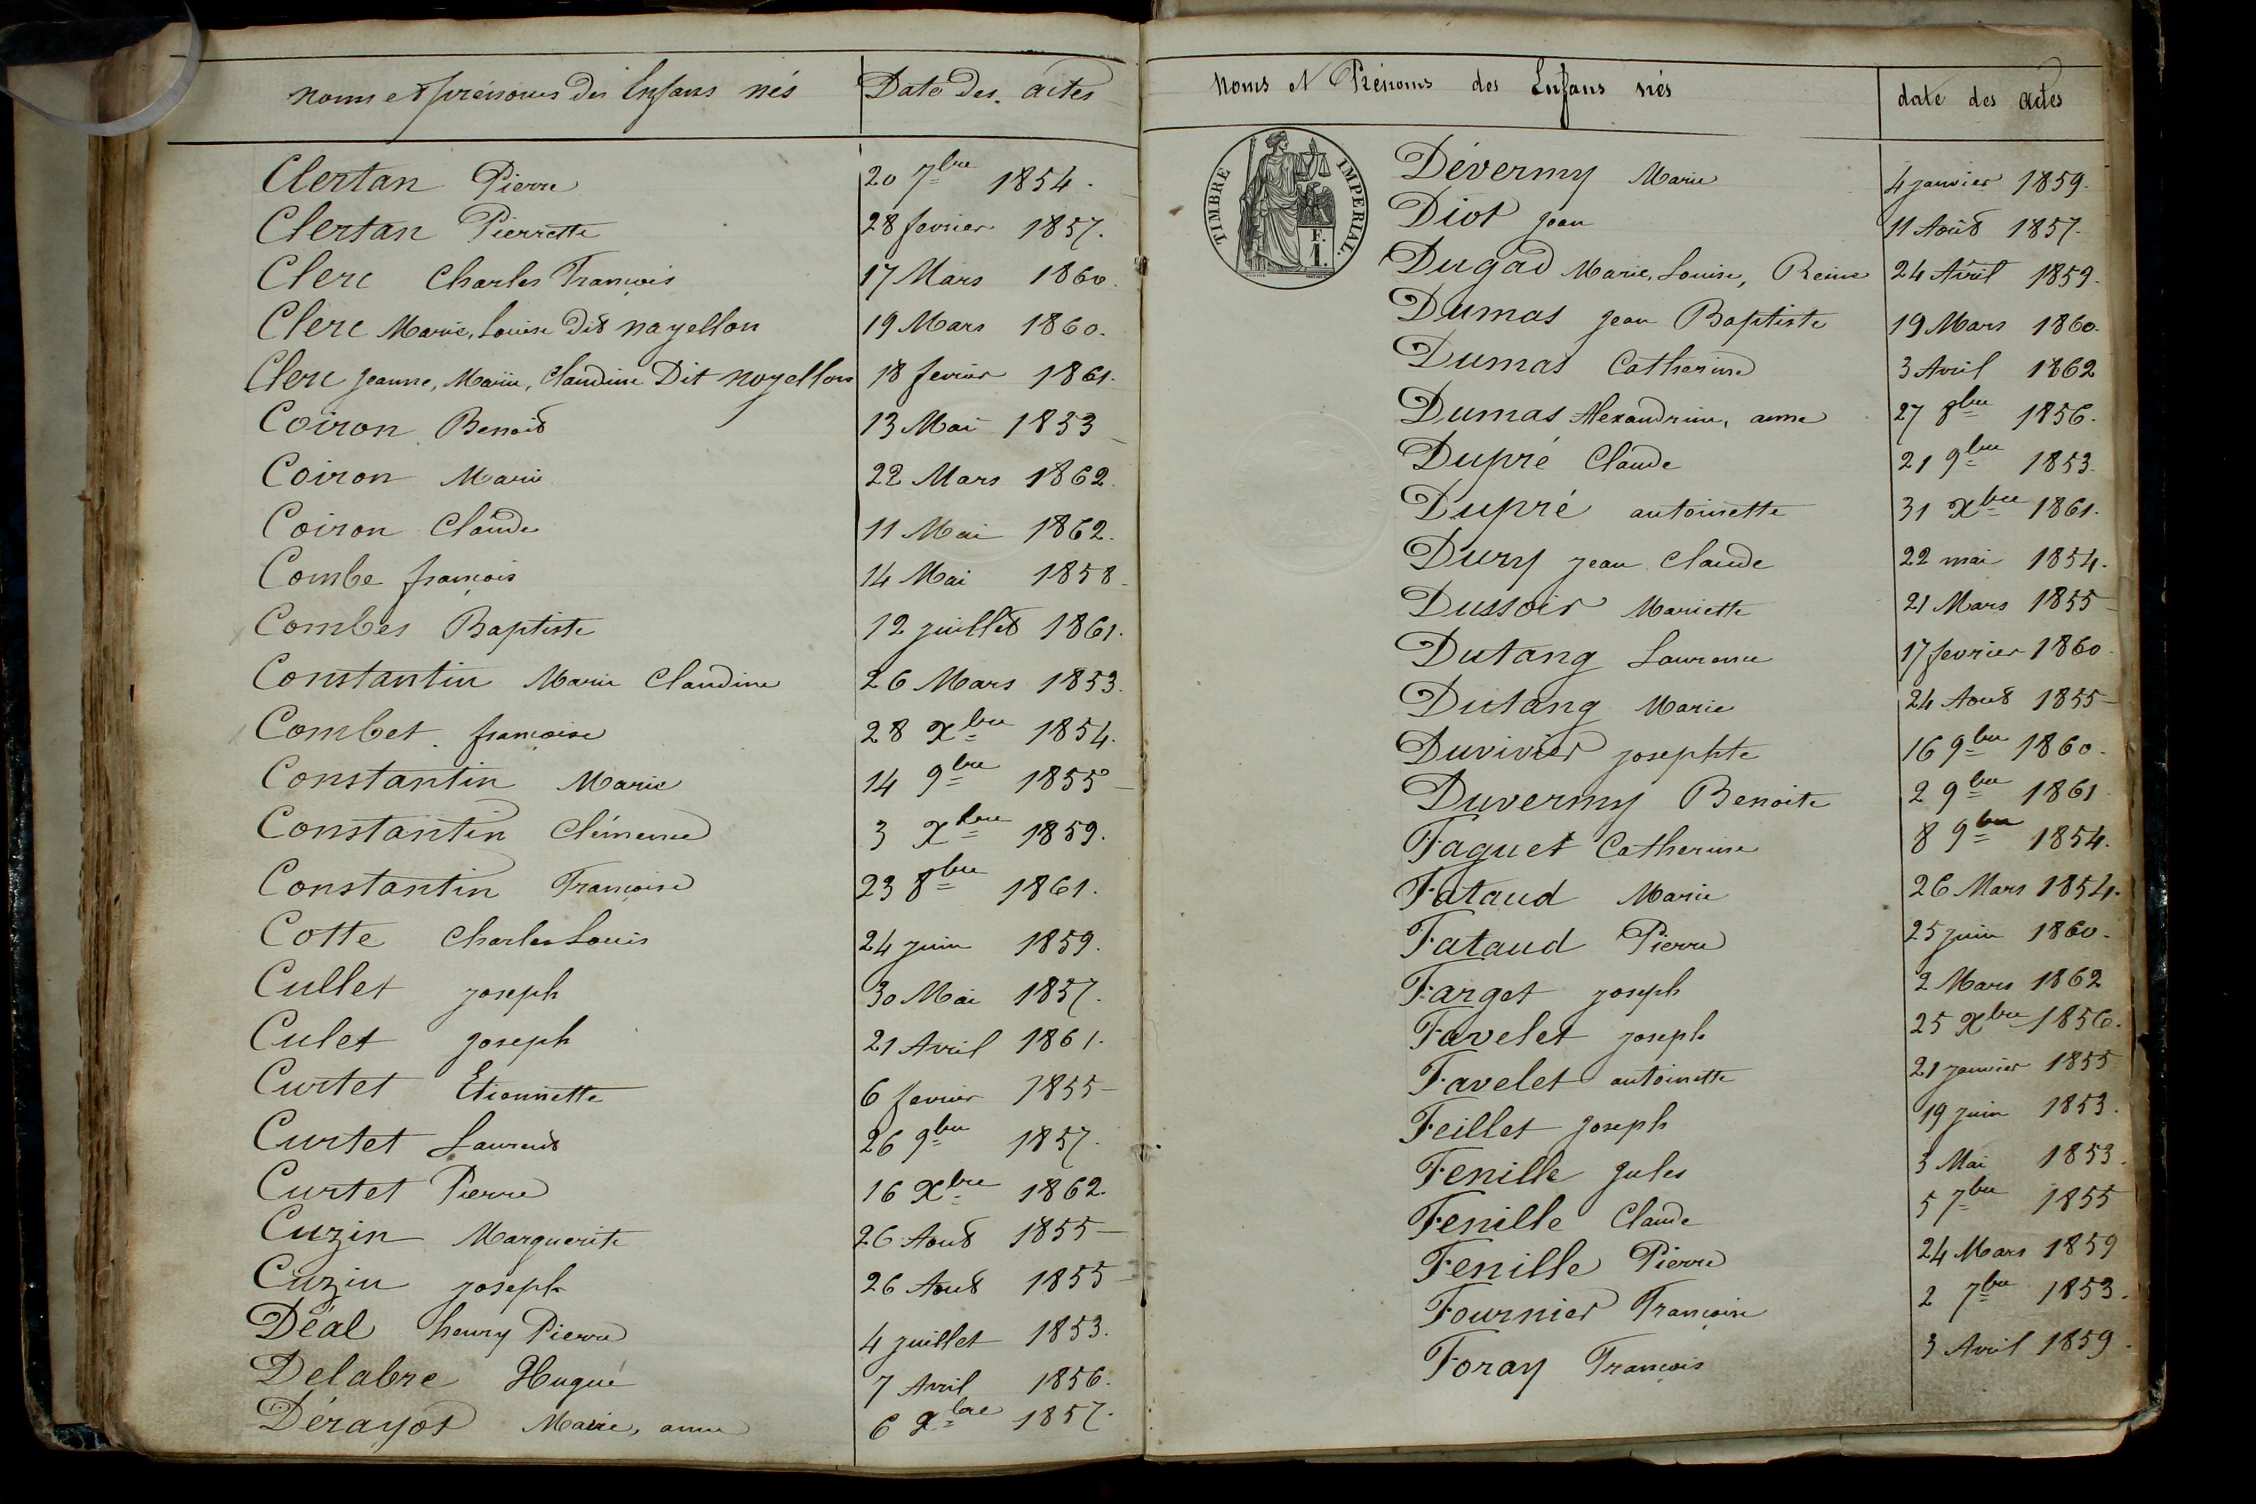 noms et prénoms des Enfans nés Date Des. actes
Clertan Pierre 20 7bre 1854.
Clertan Pierrette 28 fevrier 1857.
Clerc Charles François 17 Mars 1860.
Clerc Marie, Louise dit nayellon 19 Mars 1860.
Clerc Jeanne, Marie, Claudine Dit noyellon 18 fevrier 1861.
Coiron Benoit 13 Mai 1853
Coiron Marie 22 Mars 1862.
Coiron Claude 11 Mai 1862.
Combe françois 14 Mai 1858
Combes Baptiste 12 juillet 1861.
Constantin Marie Claudine 26 Mars 1853.
Combet françoise 28 Xbre 1854.
Constantin Marie 14 9bre 1855
Constantin Clémence 3 Xbre 1859.
Constantin Françoise 23 8bre 1861.
Cotte Charles Louis 24 juin 1859.
Cullet joseph 30 Mai 1857.
Culet joseph 21 Avril 1861.
Curtet Etiennette 6 fevrier 1855
Curtet Laurent 26 9bre 1857.
Curtet Pierre 16 Xbre 1862.
Cuzin Marguerite 26 Aout 1855
Cuzin joseph 26 Aout 1855
Déal henry Pierre 4 juillet 1853.
Delabre Hugue 7 Avril 1856.
Dérayot Marie, anne 6 Xbre 1857.
Noms et Prénoms des Enfans nés date des actes
TIMBRE IMPERIAL.
F.
1.
Dévermy Marie 4 janvier 1859.
Diot jean 11 Août 1857.
Dugad Marie, Louise, Reine 24 Avril 1859.
Dumas jean Baptiste 19 Mars 1860.
Dumas Catherine 3 Avril 1862
Dumas Alexandrine, anne 27 8bre 1856.
Dupré Claude 21 9bre 1853.
Dupré antoinette 31 Xbre 1861.
Dury jean Claude 22 mai 1854.
Dussoir Mariette 21 Mars 1855
Dutang Laurence 17 fevrier 1860.
Dutang Marie 24 Aout 1855
Duvivier josephte 16 9bre 1860.
Duvermy Benoite 2 9bre 1861
Faguet Catherine 8 9bre 1854.
Fataud Marie 26 Mars 1854.
Fataud Pierre 25 juin 1860.
Farget joseph 2 Mars 1862
Favelet joseph 25 Xbre 1856.
Favelet antoinette 21 janvier 1855
Feillet joseph 19 juin 1853.
Fenille Jules 3 Mai 1853.
Fenille Claude 5 7bre 1855
Fenille Pierre 24 Mars 1859
Fournier Françoise 2 7bre 1853.
Foray François 3 Avril 1859.